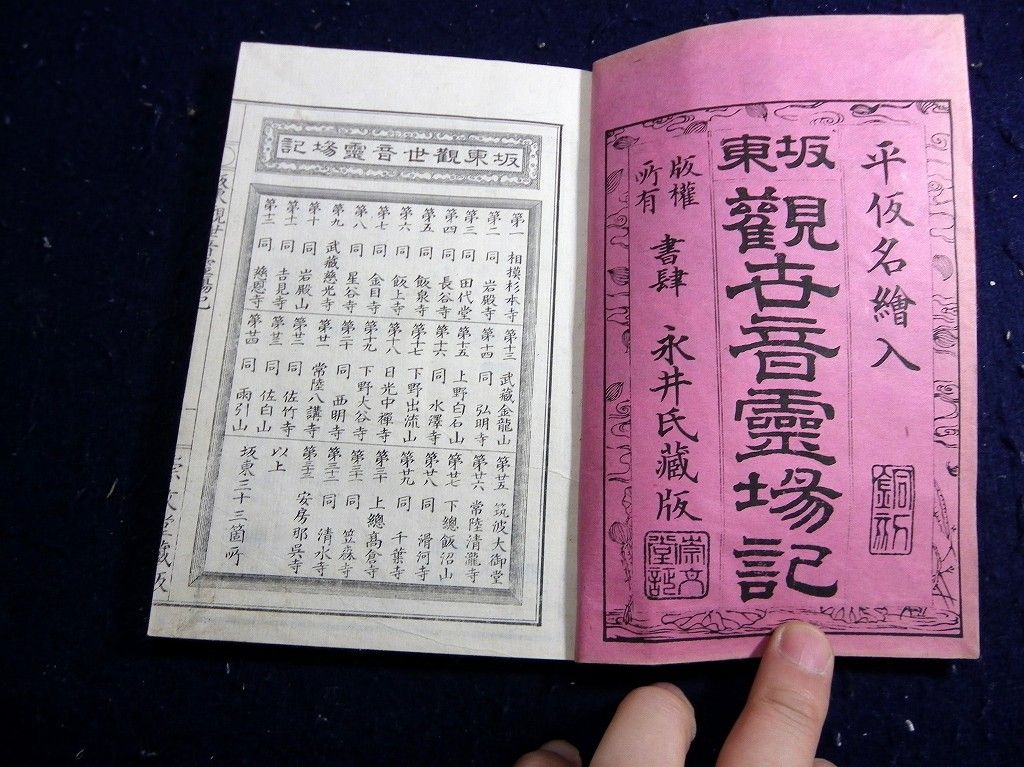 平仮名繪入
銅刻
坂東
觀世音靈場記
版權
所有
書肆 永井氏藏版
崇文
堂記
坂東觀世音靈場記
第一 相摸杉本寺
第二 同 岩殿寺
第三 同 田代堂
第四 同 長谷寺
第五 同 飯泉寺
第六 同 飯上寺
第七 同 金目寺
第八 同 星谷寺
第九 武藏慈光寺
第十 同 岩殿山
第十一 同 吉見寺
第十二 同 慈恩寺
第十三 武藏金龍山
第十四 同 弘明寺
第十五 上野白石山
第十六 同 水澤寺
第十七 下野出流山
第十八 日光中禪寺
第十九 下野大谷寺
第二十 同 西明寺
第廿一 常陸八講寺
第廿二 同 佐竹寺
第廿三 同 佐白山
第廿四 同 雨引山
第廿五 筑波大御堂
第廿六 常陸清瀧寺
第廿七 下總飯沼山
第廿八 同 滑河寺
第廿九 同 千葉寺
第三十 上總高倉寺
第三十一 同 笠森寺
第三十二 同 清水寺
第三十三 安房那吳寺
以上
坂東三十三箇所